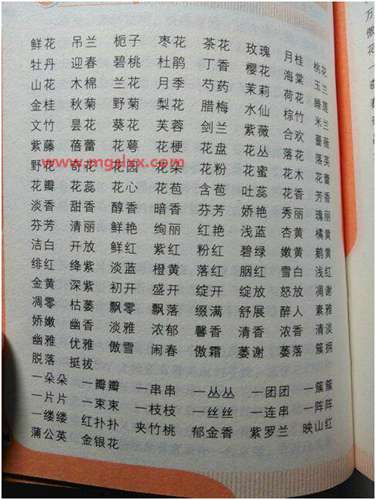 鲜花 吊兰 栀子 枣花 茶花 玫瑰 月桂 桃花
牡丹 迎春 碧桃 杜鹃 丁香 樱花 海棠 玉兰
山花 木棉 兰花 月季 芍药 茉莉 荷花 睡莲
金桂 秋菊 野菊 梨花 腊梅 水仙 棕竹 米兰
文竹 昙花 葵花 芙蓉 剑兰 紫薇 合欢 蔷薇
紫藤 蓓蕾 花萼 花梗 花盘 花丛 落花 落英
野花 奇花 花园 花朵 花粉 花蜜 花木 花卉
花瓣 花蕊 花心 花苞 含苞 吐蕊 花香 芳香
淡香 甜香 醇香 暗香 芬芳 娇艳 秀丽 瑰丽
芬芳 清丽 鲜艳 绚丽 红艳 浅蓝 杏黄 橘黄
洁白 开放 鲜红 紫红 粉红 碧绿 嫩黄 鹅黄
绯红 绛紫 淡蓝 橙黄 落红 胭红 雪白 浅红
金黄 深紫 初开 盛开 绽开 绽放 怒放 凋谢
凋零 枯萎 飘零 飘落 缀满 舒展 醉人 素雅
娇嫩 幽香 淡雅 浓郁 馨香 清香 浓香 清淡
幽雅 优雅 傲雪 闹春 傲霜 萎谢 萎落 簇拥
脱落 挺拔
一朵朵 一瓣瓣 一串串 一丛丛 一团团 一簇簇
一片片 一束束 一枝枝 一丝丝 一连串 一阵阵
一缕缕 红扑扑 夹竹桃 郁金香 紫罗兰 映山红
蒲公英 金银花
www.mgjlxx.com